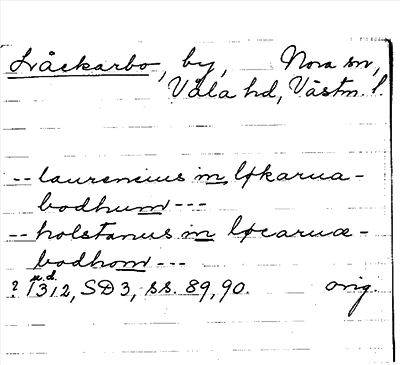 Låckarbo, by, Nora sn,
Våla hd, Västm. l.
-- laurencius in løkarua-
bodhum ---
-- holstanus in løcaruæ-
bodhom ---
u.d.
? 1312, SD 3, ss. 89, 90. orig.